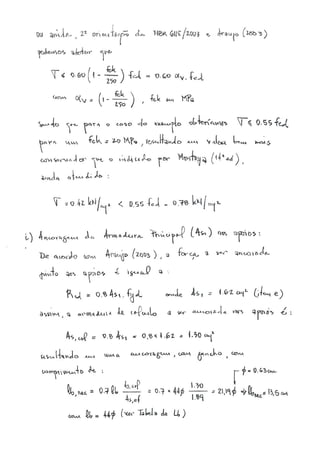 ou ainda, 2ª orientação da NBR 6118/2003 e Araujo (2003)
podemos adotar que
τ ≤ 0.60 (1 - fck/250) fcd = 0.60 αv . fcd
com αv = (1 - fck/250), fck em MPa
Sendo que para o caso do exemplo obteríamos τ ≤ 0.55 fcd
para um fck = 20 MPa, resultando em valor bem mais
conservador que o indicado por Montoya
ainda atendido:
τ = 0.42 kN/cm² < 0.55 fcd = 0.78 kN/cm²
i) Ancoragem da Armadura Principal (As1) nos apoios:
De acordo com Araujo (2003), a força a ser ancorada
junto aos apoios é igual a:
Rsd = 0.8 As1 . fyd onde As1 = 1.62 cm² (item e)
assim, a armadura de cálculo a ser ancorada nos apoios é:
As,cal = 0.8 As1 = 0.8 x 1.62 = 1.30 cm²
resultando em uma ancoragem, com gancho, com
comprimento de:
ϕ = 0.63cm
lb,nec = 0.7 lb As,cal/As,ef = 0.7 * 44ϕ 1.30/1.89 = 21,19ϕ ⇒ lb,nec = 13,5 cm
com lb = 44ϕ (ver Tabela de Lb)